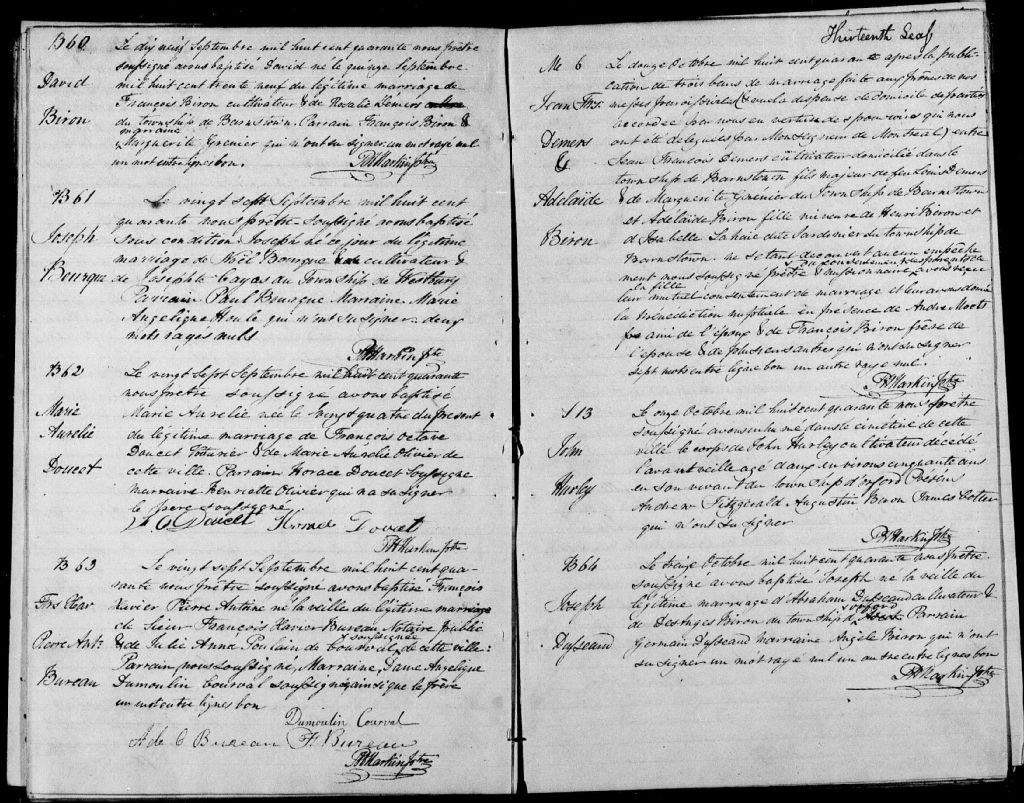 B60
David
Biron
Le dix neuf Septembre mil huit cent quarante nous prêtre
soussigné avons baptisé David né le quinze Septembre
mil huit cent trente neuf du légitime mariage de
François Biron cultivateur & de Rosalie Demers
du township de Barnston. Parrain François Biron &
marraine
Marguerite Grenier qui n'ont su signer. un mot rayé nul
un mot entre lignes bon.
B61
Joseph
Bourque
Le vingt sept Septembre mil huit cent
quarante nous prêtre soussigné avons baptisé
sous condition Joseph né ce jour du légitime
mariage de Noël Bourque cultivateur &
de Josephte Gayas du Township de Westbury
Parrain Paul Bourque Marraine Marie
Angelique Houle qui n'ont su signer deux
mots rayés nuls
B62
Marie
Aurelie
Doucet
Le vingt sept Septembre mil huit cent quarante
nous prêtre soussigné avons baptisé
Marie Aurelie née le vingt quatre du présent
du légitime mariage de François Octave
Doucet & de Marie Aurélie Olivier de
cette ville. Parrain Horace Doucet Soussigné
marraine Henriette Olivier qui n'a su signer
le père soussigné
F O Doucet Horace Doucet
B63
Frs Xavr
Pierre Antne
Bureau
Le vingt sept Septembre mil huit cent qua-
rante nous prêtre soussigné avons baptisé François
Xavier Pierre Antoine né la veille du légitime mariage
de Sieur François Xavier Bureau Notaire public
soussignée
& de Julie Anna Poulain de Courval de cette ville
Parrain nous soussigné, Marraine Dame Angelique
Dumoulin Courval soussignée ainsi que le père
un mot entre lignes bon
Dumoulin Courval
A de C Bureau F. Bureau
Thirteenth Leaf
M 6
Jean Frs
Demers
&
Adelaïde
Biron
Le douze Octobre mil huit cent quarante après la publi-
cation de trois bans de mariage faite aux prônes de nos
messes paroissiales (vu la dispense de domicile des parties
accordée par nous en vertu des pouvoirs qui nous
ont été delegués par Monseigneur de Montreal) entre
Jean François Demers cultivateur domicilié dans le
township de Barnston fils majeur de feu Louis Demers
& de Marguerite Grénier du Township de Barnston
et Adelaïde Biron fille mineure de Henri Biron et
d'Isabelle Lahaie dite Jardinier du township de
Barnston. ne s'étant decouvert aucun empêche
ment nous soussigné prêtre & missionnaire avons reçu
la fille
leur mutuel consentement de mariage et leur avons donné
la bénédiction nuptiale en présence de André Moots
ami de l'époux & de François Biron frère de
l'épouse & de plusieurs autres qui n'ont su signer
sept mots entre ligne bon un autre rayé nul.
S 13
John
Hurley
Le onze Octobre mil huit cent quarante nous prêtre
soussigné avons enhumé dans le cimetière de cette
ville le corps de John Hurley cultivateur décédé
l'avant veille agé d'environs cinquante ans
en son vivant du township d'Orford Présens
Andrew Fitzgerald Augustin Biron James Colter
qui n'ont su signer
B64
Joseph
Dusseaud
Le treize Octobre mil huit cent quarante nous prêtre
soussigné avons baptisé Joseph né la veille du
légitime mariage d'Abraham Dusseaud cultivateur &
d'orford
de Desanges Biron du township Parrain
Germain Dusseaud marraine Angele Biron qui n'ont
su signer un mot rayé nul un autre entre lignes bon